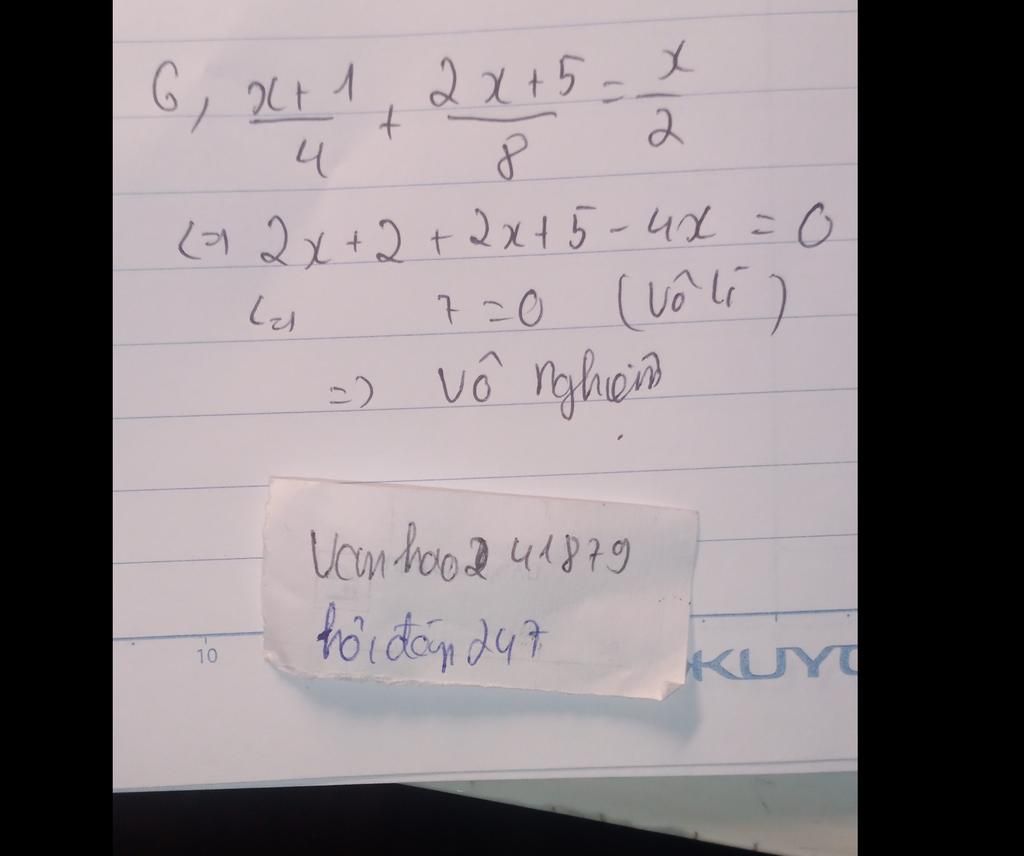 6, x+1/4 + 2x+5/8 = x/2
<=> 2x+2+2x+5-4x = 0
<=> 7 = 0 (Vô lí)
=> Vô nghiệm
Vanhao2 41879
hỏi đáp 247
10
KUYO